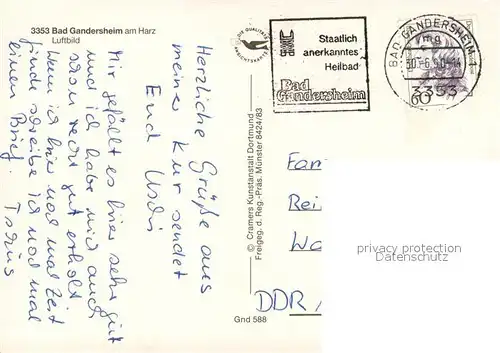 3353 Bad Gandersheim am Harz
Luftbild
Herzliche Grüße aus
meiner Kur sendet
Euch Uschi
Mir gefällt es hier sehr gut
und ich habe mich auch
schon recht gut erholt
Wenn ich hier noch mal Zeit
finde schreibe ich noch mal
einen Brief.
Tschüs
© Cramers Kunstanstalt Dortmund
Freigeg. d. Reg.-Präs. Münster 8424/83
Gnd 588
Staatlich
anerkanntes
Heilbad
Bad
Gandersheim
BAD GANDERSHEIM
3353
60
Fam
Rei
Wa
DDR
privacy protection
Datenschutz